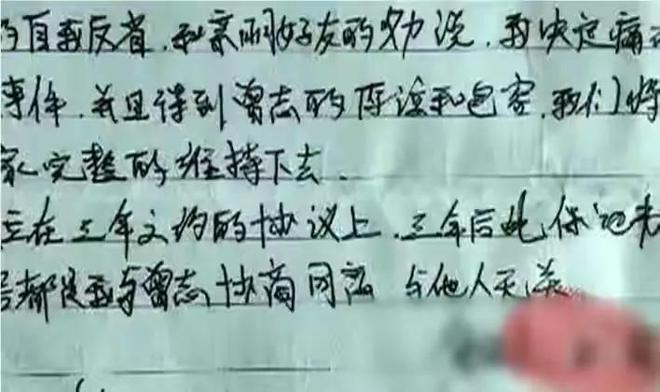 的自我反省.和亲朋好友的劝说.我决定痛改
事件.并且得到曾志的原谅和包容.我们将
家完整的维持下去.
立在三年之约的协议上.三年后此保记未
都是我与曾志协商同意 与他人无关